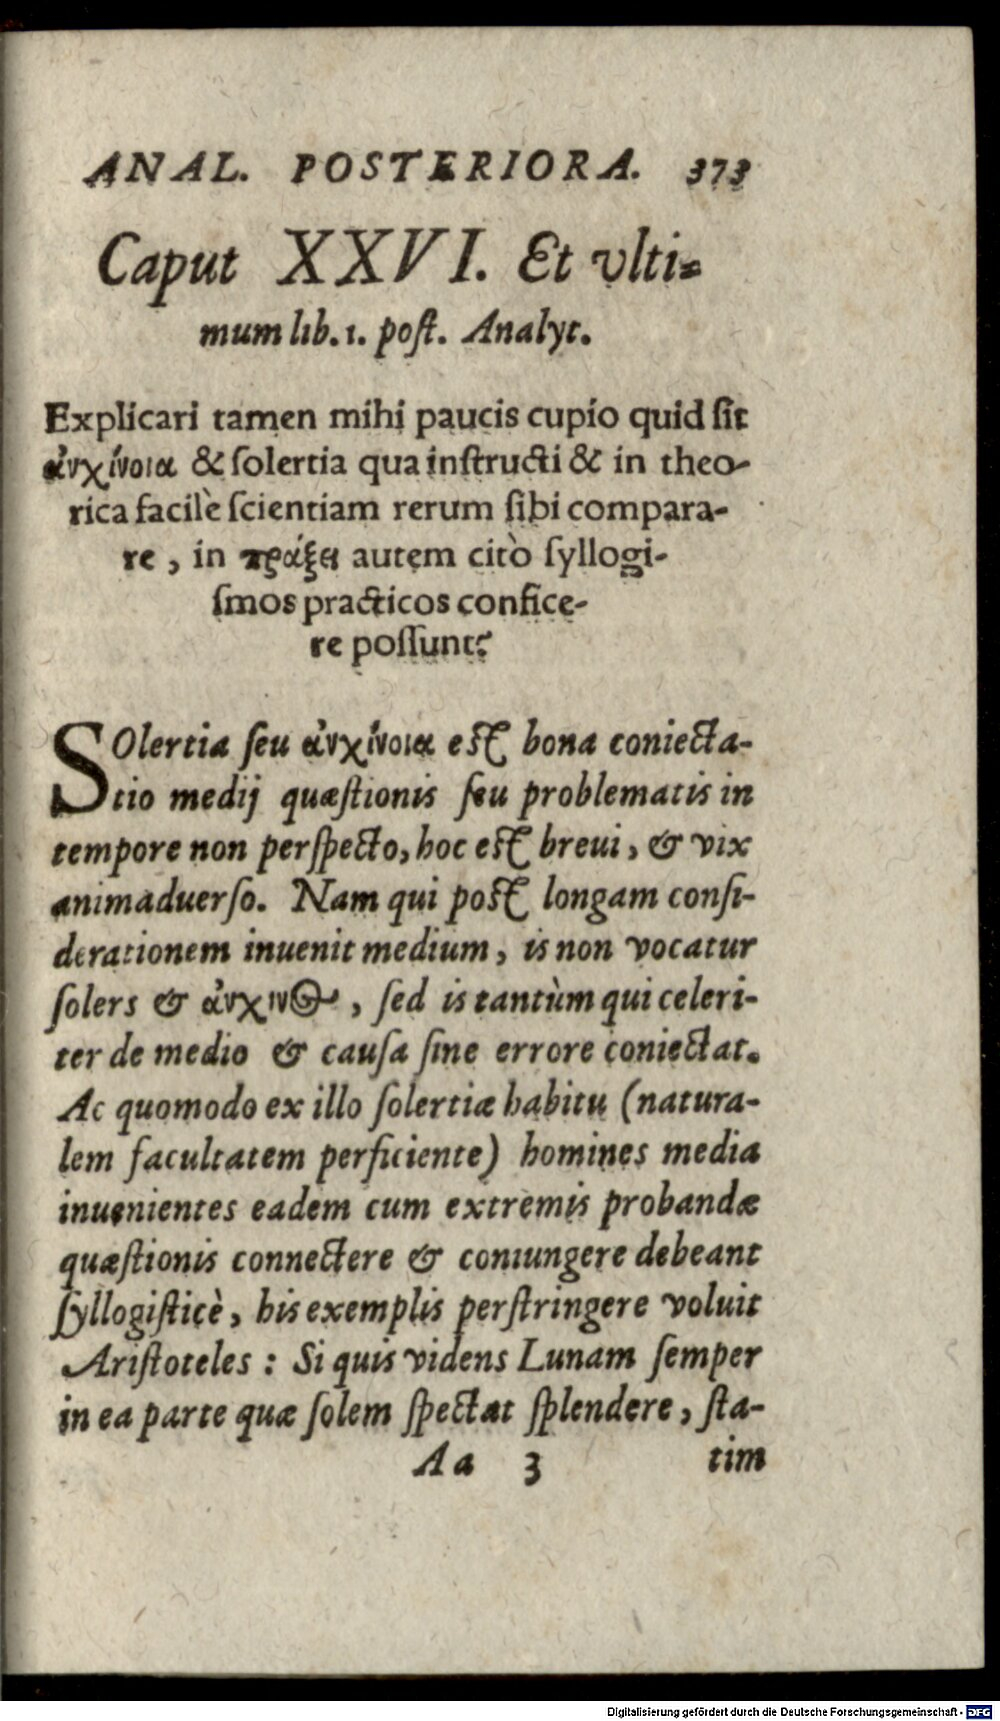 ANAL. POSTERIORA. 373
Caput XXVI. Et vlti-
mum lib. 1. post. Analyt.
Explicari tamen mihi paucis cupio quid sit
ἀνχίνοια & solertia qua instructi & in theo-
rica facilè scientiam rerum sibi compara-
re, in πράξει autem citò syllogi-
smos practicos confice-
re possunt?
SOlertia seu ἀνχίνοια est bona coniecta-
tio medij quæstionis seu problematis in
tempore non perspecto, hoc est breui, & vix
animaduerso. Nam qui post longam consi-
derationem inuenit medium, is non vocatur
solers & ἀνχινος, sed is tantùm qui celeri-
ter de medio & causa sine errore coniectat.
Ac quomodo ex illo solertiæ habitu (natura-
lem facultatem perficiente) homines media
inuenientes eadem cum extremis probandæ
quæstionis connectere & coniungere debeant
syllogisticè, his exemplis perstringere voluit
Aristoteles: Si quis videns Lunam semper
in ea parte quæ solem spectat splendere, sta-
Aa 3 tim
Digitalisierung gefördert durch die Deutsche Forschungsgemeinschaft - DFG